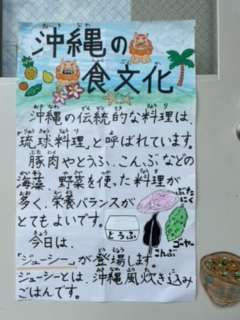 沖縄の
食文化
沖縄の伝統的な料理は、
琉球料理と呼ばれています。
豚肉やとうふ、こんぶなどの
海藻、野菜を使った料理が
多く、栄養バランスが
とてもよいです。
ぶたにく
とうふ
ゴーヤー
こんぶ
今日は、
「ジューシー」が登場します。
ジューシーとは、沖縄風炊き込み
ごはんです。